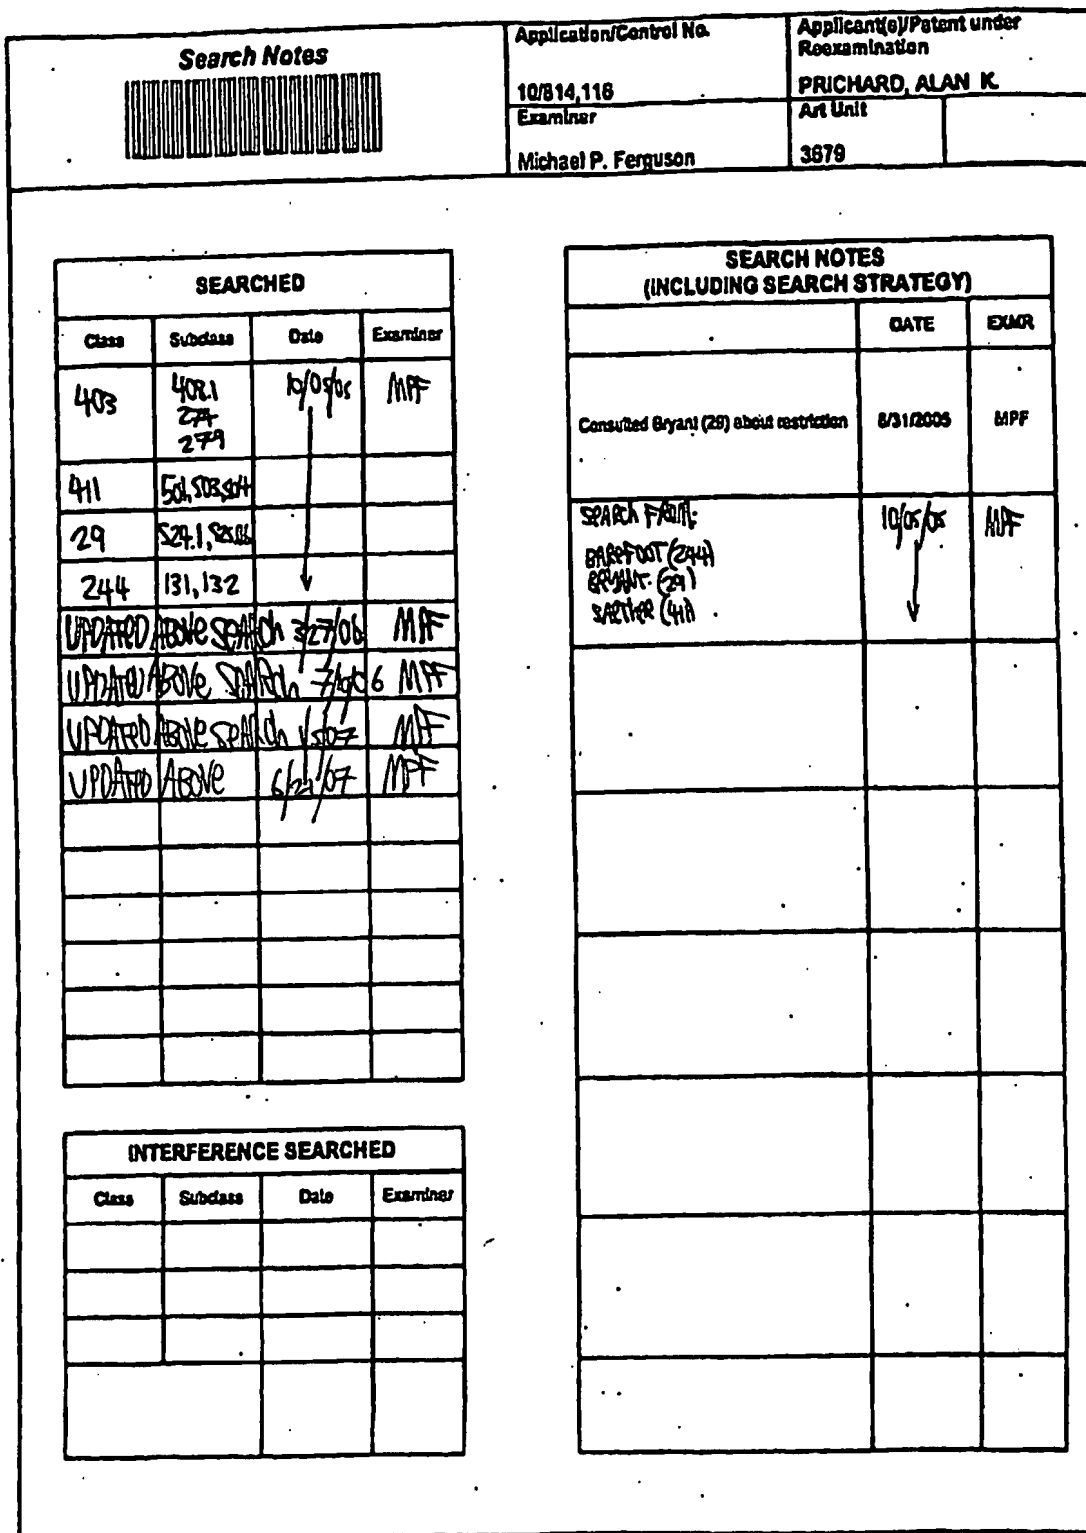 Search Notes
Application/Control No.
10/814,116
Applicant(s)/Patent under
Reexamination
PRICHARD, ALAN K.
Examiner
Michael P. Ferguson
Art Unit
3679
SEARCHED
Class Subclass Date Examiner
403 408.1 10/05/05 MPF
274
279
411 501,503,504
29 529.1,
244 131,132
UPDATED ABOVE SEARCH 3/27/06 MPF
UPDATED ABOVE SEARCH MPF
UPDATED ABOVE SEARCH 1/5/07 MPF
UPDATED ABOVE MPF
INTERFERENCE SEARCHED
Class Subclass Date Examiner
SEARCH NOTES
(INCLUDING SEARCH STRATEGY)
DATE EXMR
Consulted Bryant (29) about restriction 8/31/2005 MPF
SEARCH FROM: 10/05/05 MPF
BAREFOOT (244)
BRYANT (29)
(411)